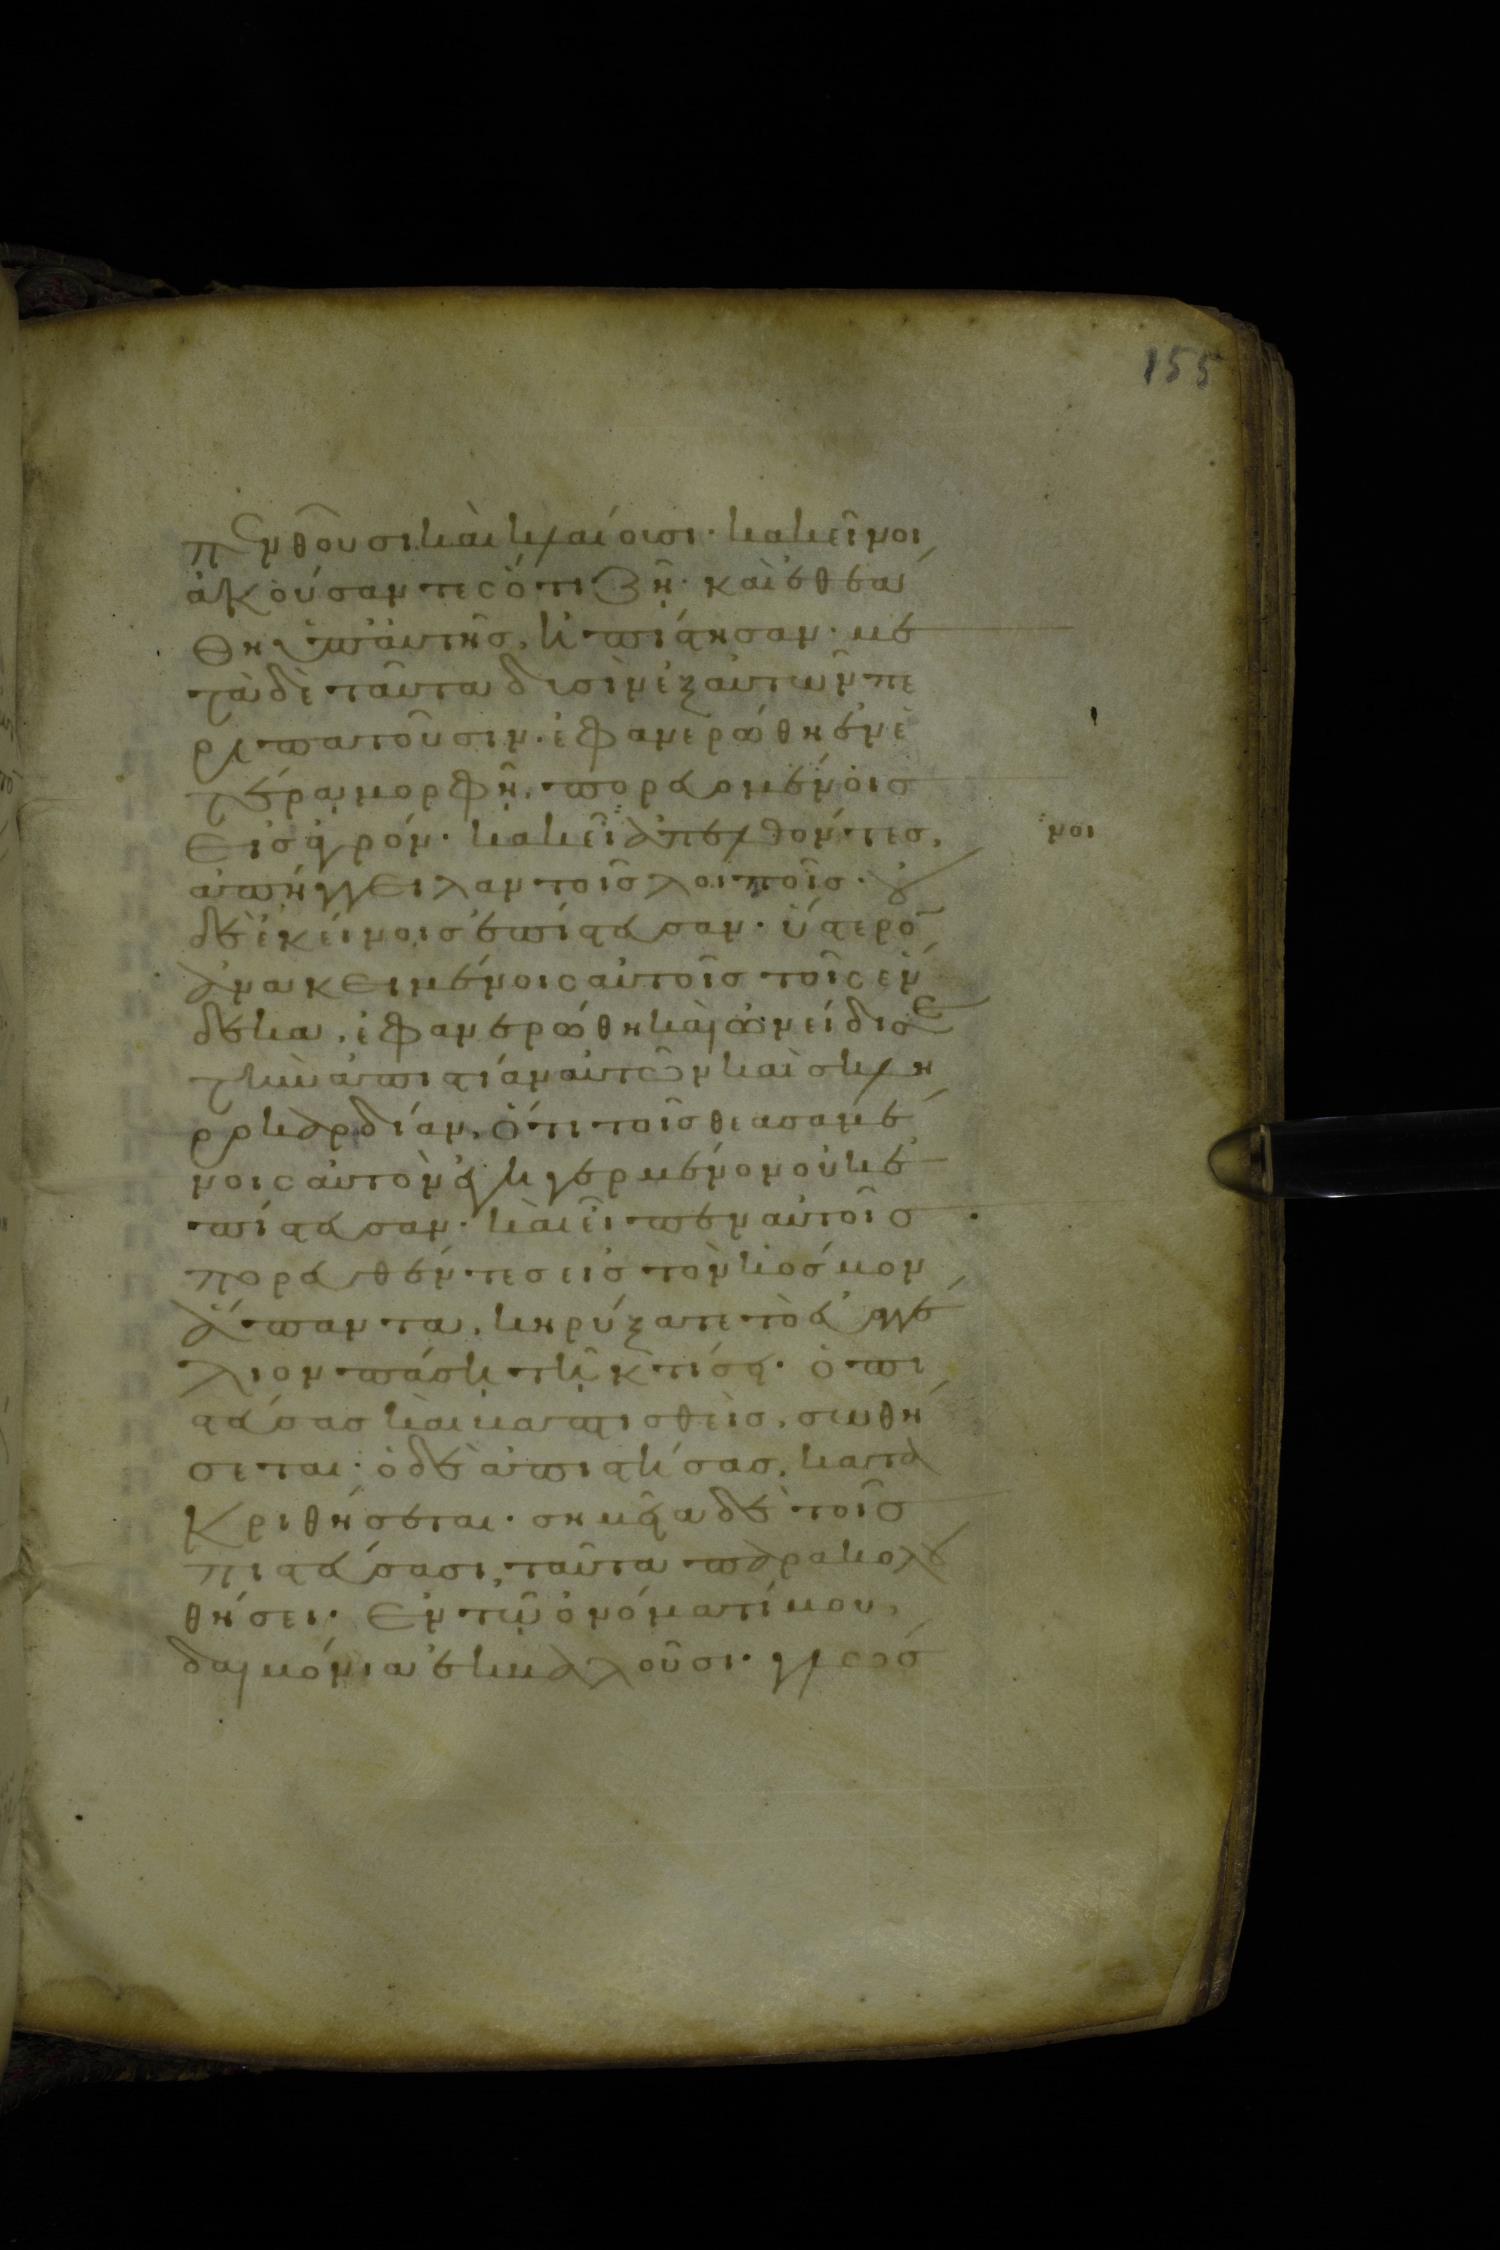 155
πενθοῦσι καὶ κλαίουσι· κακεῖνοι
ἀκούσαντες ὅτι ζῆ· καὶ ἐθεά
θη ὑπ' αὐτῆς, ἠπίστησαν· με
τὰ δὲ ταῦτα δυσὶν ἐξ αὐτῶν πε
ριπατοῦσιν· ἐφανερώθη ἐν ἑ
τέρα μορφῆ, πορευομένοις
εἰς ἀγρόν· κακεῖ ἀπελθόντες,
νοι
ἀπήγγειλαν τοῖς λοιποῖς· οὐ
δὲ ἐκείνοις ἐπίστευσαν· ὕστερον
ἀνακειμένοις αὐτοῖς τοῖς ἕν
δεκα, ἐφανερώθη καὶ ὠνείδισε
τὴν ἀπιστίαν αὐτῶν καὶ σκλη
ροκαρδίαν, ὅτι τοῖς θεασαμέ
νοις αὐτὸν ἐγηγερμένον οὐκ ἐ
πίστευσαν· καὶ εἶπεν αὐτοῖς
πορευθέντες εἰς τὸν κόσμον
ἅπαντα, κηρύξατε τὸ εὐαγγέ
λιον πάση τῆ κτίσει· ὁ πι
στεύσας καὶ βαπτισθεὶς, σωθή
σεται· ὁ δὲ ἀπιστήσας, κατα
κριθήσεται· σημεῖα δὲ τοῖς
πιστεύσασι, ταῦτα παρακολου
θήσει· Ἐν τῶ ὀνόματί μου,
δαιμόνια ἐκβαλοῦσι· γλώσ